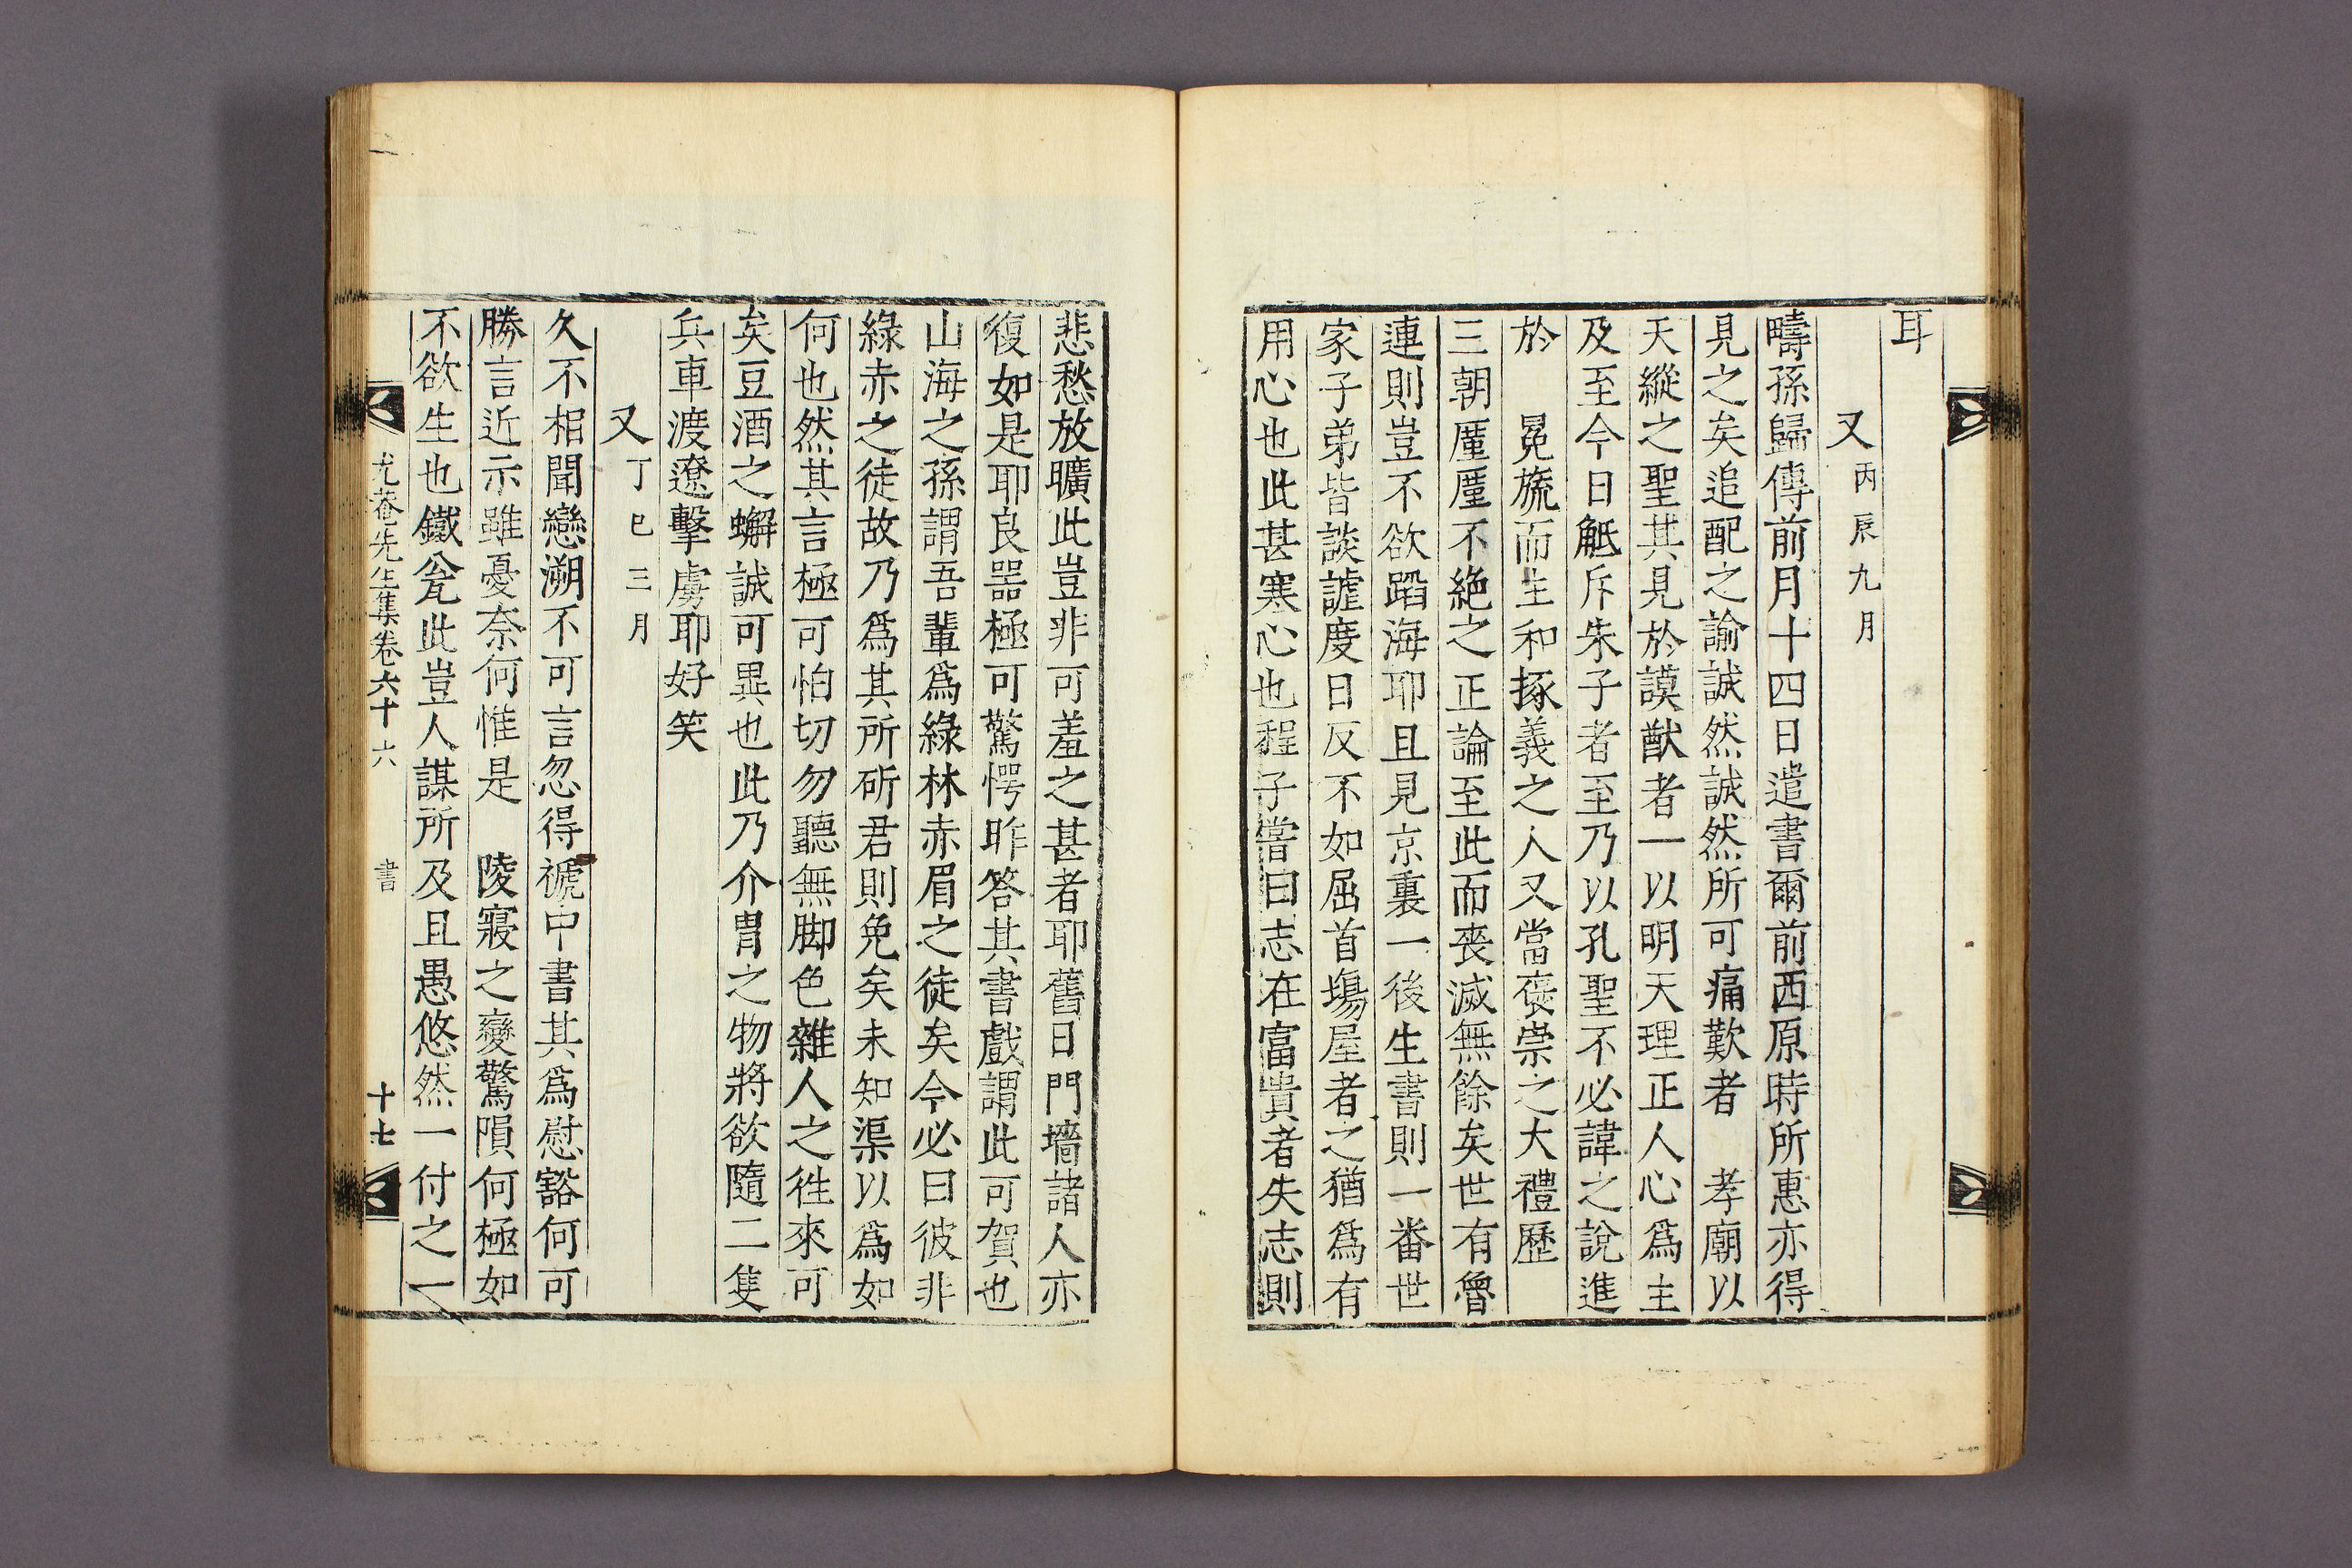 耳
又丙辰九月
疇孫歸傳前月十四日遣書爾前西原時所惠亦得
見之矣追配之諭誠然誠然所可痛歎者　孝廟以
天縱之聖其見於謨猷者一以明天理正人心爲主
及至今日觝斥朱子者至乃以孔聖不必諱之說進
於　冕旒而主和捩義之人又當褒崇之大禮歷
三朝厪厪不絶之正論至此而喪滅無餘矣世有魯
連則豈不欲蹈海耶且見京裏一後生書則一番世
家子弟皆談謔度日反不如屈首塲屋者之猶爲有
用心也此甚寒心也程子嘗曰志在富貴者失志則
悲愁放曠此豈非可羞之甚者耶舊日門墻諸人亦
復如是耶良噐極可驚愕昨答其書戱謂此可賀也
山海之孫謂吾輩爲綠林赤眉之徒矣今必曰彼非
綠赤之徒故乃爲其所斫君則免矣未知渠以爲如
何也然其言極可怕切勿聽無脚色雜人之徃來可
矣豆酒之蠏誠可異也此乃介胄之物將欲隨二隻
兵車渡遼擊虜耶好笑
又丁巳三月
久不相聞戀溯不可言忽得褫中書其爲慰豁何可
勝言近示雖憂奈何惟是　陵寢之變驚隕何極如
不欲生也鐵瓮此豈人謀所及且愚悠然一付之一
尤菴先生集卷六十六　書　十七